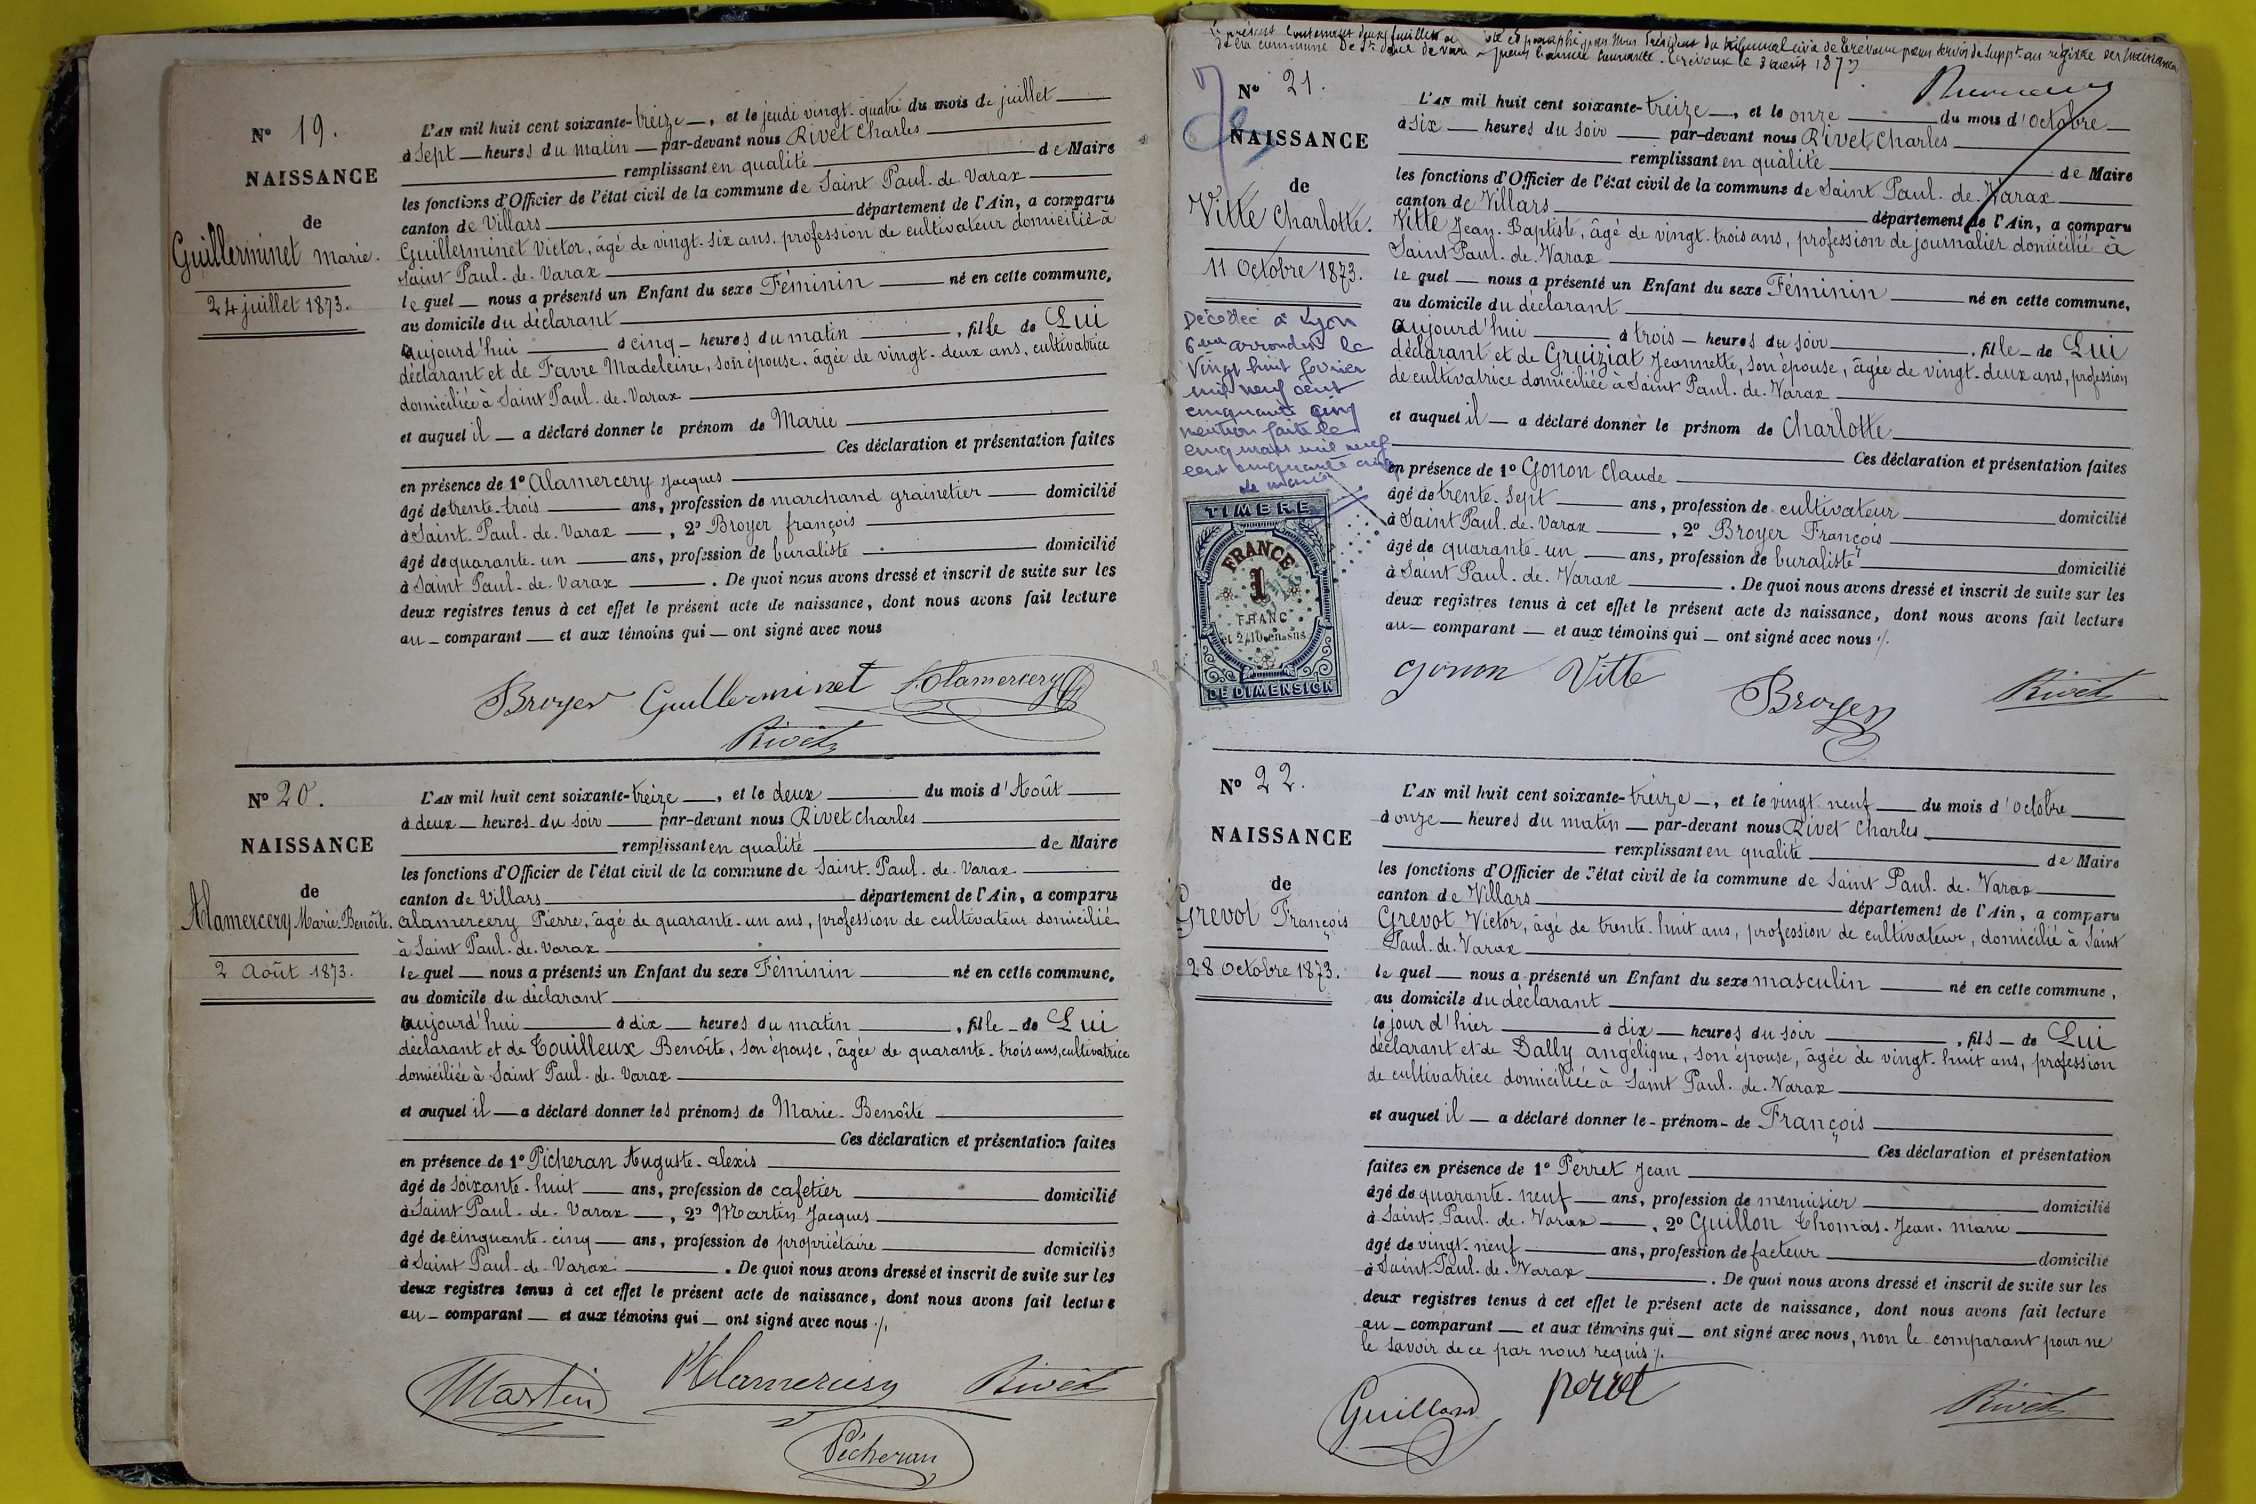 N° 19.
NAISSANCE
de
Guillerminet marie.
24 juillet 1873.
L'AN mil huit cent soixante-treize, et le jeudi vingt-quatre du mois de juillet
à Sept heures du matin par-devant nous Rivet Charles
remplissant en qualité de Maire
les fonctions d'Officier de l'état civil de la commune de Saint Paul. de Varax
canton de Villars département de l'Ain, a comparu
Guillerminet Victor, âgé de vingt-six ans, profession de cultivateur domicilié à
Saint Paul. de. Varax
le quel nous a présenté un Enfant du sexe Féminin né en cette commune,
au domicile du déclarant
aujourd'hui à cinq heures du matin, fille de Lui
déclarant et de Favre Madeleine, son épouse, âgée de vingt-deux ans, cultivatrice
domiciliée à Saint Paul. de. Varax
et auquel il a déclaré donner le prénom de Marie
Ces déclaration et présentation faites
en présence de 1° Alamercery Jacques
âgé de trente-trois ans, profession de marchand grainetier domicilié
à Saint. Paul. de. Varax, 2° Broyer françois
âgé de quarante-un ans, profession de buraliste domicilié
à Saint Paul. de. Varax. De quoi nous avons dressé et inscrit de suite sur les
deux registres tenus à cet effet le présent acte de naissance, dont nous avons fait lecture
au comparant et aux témoins qui ont signé avec nous
Broyer Guillerminet Alamercery
Rivet
N° 20.
NAISSANCE
de
Alamercery Marie-Benoîte.
2 Août 1873.
L'AN mil huit cent soixante-treize, et le deux du mois d'Août
à deux heures du soir par-devant nous Rivet Charles
remplissant en qualité de Maire
les fonctions d'Officier de l'état civil de la commune de Saint. Paul. de. Varax
canton de Villars département de l'Ain, a comparu
Alamercery Pierre, âgé de quarante-un ans, profession de cultivateur domicilié
à Saint Paul. de. Varax
le quel nous a présenté un Enfant du sexe Féminin né en cette commune,
au domicile du déclarant
aujourd'hui à dix heures du matin, fille de Lui
déclarant et de Touilleux Benoîte, son épouse, âgée de quarante-trois ans, cultivatrice
domiciliée à Saint Paul. de. Varax
et auquel il a déclaré donner les prénoms de Marie-Benoîte
Ces déclaration et présentation faites
en présence de 1° Picheran Auguste-alexis
âgé de soixante-huit ans, profession de cafetier domicilié
à Saint Paul. de. Varax, 2° Martin Jacques
âgé de cinquante-cinq ans, profession de propriétaire domicilié
à Saint Paul. de. Varax. De quoi nous avons dressé et inscrit de suite sur les
deux registres tenus à cet effet le présent acte de naissance, dont nous avons fait lecture
au comparant et aux témoins qui ont signé avec nous ./.
Martin Alamercery Rivet
Picheran
Le présent contenant deux feuillets a été et paraphé par Nous Président du tribunal civil de Trévoux pour servir de suppt. au registre des naissances
de la commune de St. Paul de Varax pour l'année courante. Trévoux le 3 août 1873
N° 21.
NAISSANCE
de
Vitte Charlotte.
11 Octobre 1873.
Décédée à Lyon
6eme arrondist le
Vingt huit février
mil neuf cent
cinquante cinq
mention faite le
cinq mars mil neuf
cent cinquante cinq
TIMBRE
FRANCE
1
FRANC
et 2/10 en sus
DE DIMENSION
L'AN mil huit cent soixante-treize, et le onze du mois d'octobre
à six heures du soir par-devant nous Rivet Charles
remplissant en qualité de Maire
les fonctions d'Officier de l'état civil de la commune de Saint Paul. de. Varax
canton de Villars département de l'Ain, a comparu
Vitte Jean. Baptiste, âgé de vingt-trois ans, profession de journalier domicilié à
Saint Paul. de. Varax
le quel nous a présenté un Enfant du sexe Féminin né en cette commune,
au domicile du déclarant
aujourd'hui à trois heures du soir, fille de Lui
déclarant et de Gruiziat Jeannette, son épouse, âgée de vingt-deux ans, profession
de cultivatrice domiciliée à Saint Paul. de. Varax
et auquel il a déclaré donner le prénom de Charlotte
Ces déclaration et présentation faites
en présence de 1° Gonon Claude
âgé de trente-sept ans, profession de cultivateur domicilié
à Saint Paul. de. Varax, 2° Broyer François
âgé de quarante-un ans, profession de buraliste domicilié
à Saint Paul. de. Varax. De quoi nous avons dressé et inscrit de suite sur les
deux registres tenus à cet effet le présent acte de naissance, dont nous avons fait lecture
au comparant et aux témoins qui ont signé avec nous ./.
Gonon Vitte Broyer Rivet
N° 22.
NAISSANCE
de
Grevot François
28 octobre 1873.
L'AN mil huit cent soixante-treize, et le vingt-neuf du mois d'octobre
à onze heures du matin par-devant nous Rivet Charles
remplissant en qualité de Maire
les fonctions d'Officier de l'état civil de la commune de Saint Paul. de. Varax
canton de Villars département de l'Ain, a comparu
Grevot Victor, âgé de trente-huit ans, profession de cultivateur, domicilié à Saint
Paul. de. Varax
le quel nous a présenté un Enfant du sexe masculin né en cette commune,
au domicile du déclarant
le jour d'hier à dix heures du soir, fils de Lui
déclarant et de Dally angélique, son épouse, âgée de vingt-huit ans, profession
de cultivatrice domiciliée à Saint Paul. de. Varax
et auquel il a déclaré donner le prénom de François
Ces déclaration et présentation
faites en présence de 1° Perret Jean
âgé de quarante-neuf ans, profession de menuisier domicilié
à Saint-Paul. de. Varax, 2° Guillon Thomas-Jean-marie
âgé de vingt-neuf ans, profession de facteur domicilié
à Saint-Paul. de. Varax. De quoi nous avons dressé et inscrit de suite sur les
deux registres tenus à cet effet le présent acte de naissance, dont nous avons fait lecture
au comparant et aux témoins qui ont signé avec nous, non le comparant pour ne
le savoir de ce par nous requis ./.
Guillon perret Rivet